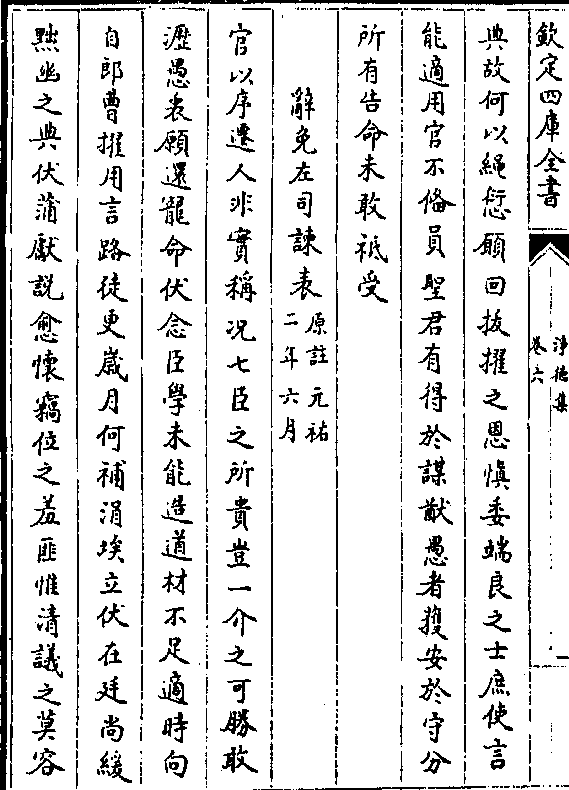 欽定四庫全書
淨德集
卷六
典故何以繩愆願回拔擢之恩慎委端良之士庶使言
能適用官不俻員聖君有得於謀猷愚者獲安於守分
所有告命未敢祗受
辭免左司諫表原註元祐
二年六月
官以序遷人非實稱况七臣之所貴豈一介之可勝敢
瀝愚衷願還寵命伏念臣學未能造道材不足適時向
自郎曹擢用言路徒更嵗月何補涓埃立伏在廷尚緩
黜幽之典伏蒲獻説愈懷竊位之羞匪惟清議之莫容